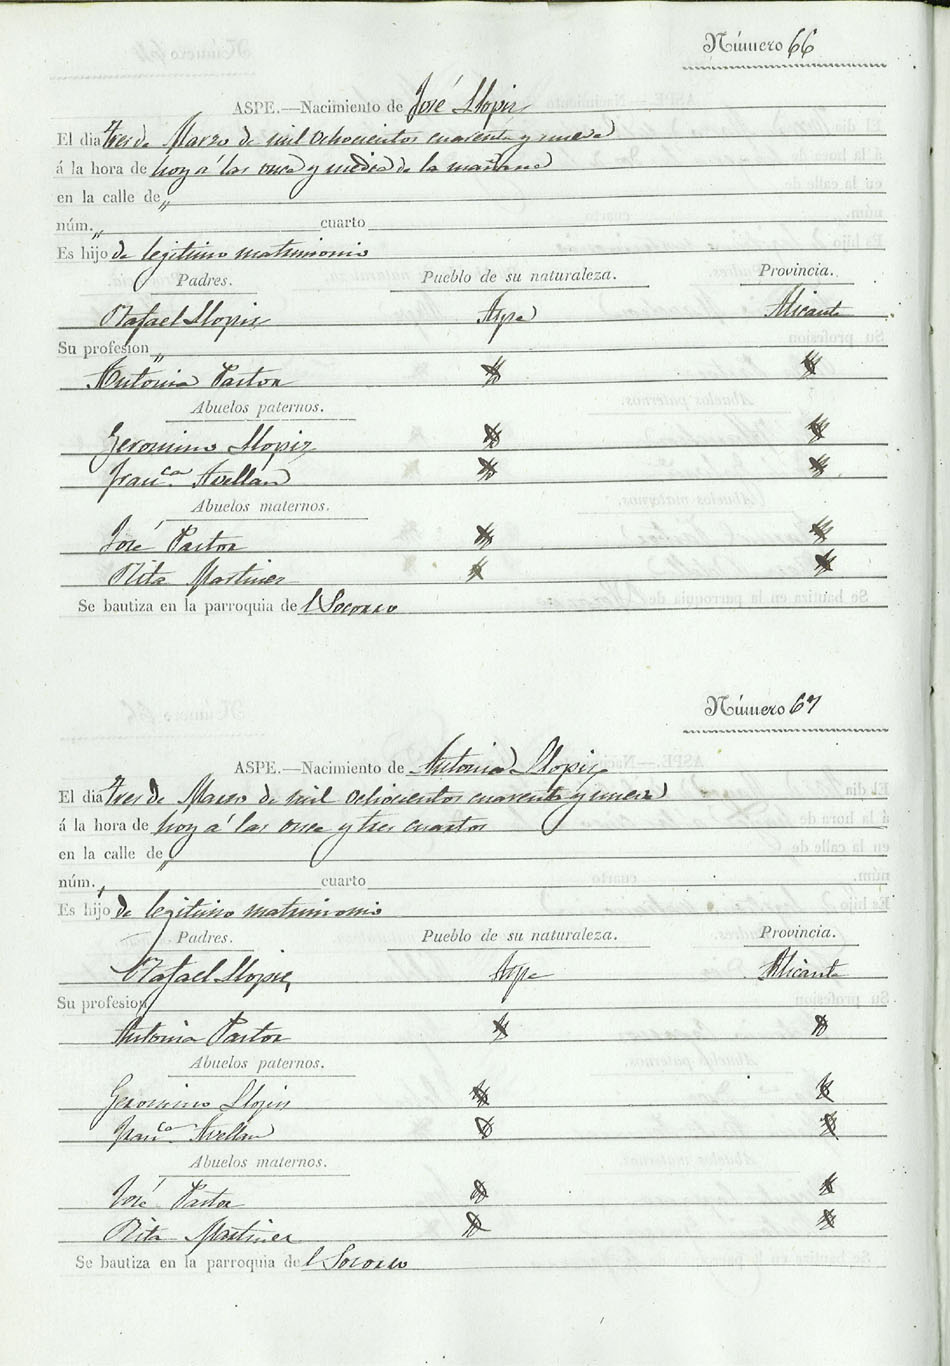 Número 66
ASPE.—Nacimiento de José Llopiz
El dia tres de Marzo de mil ochocientos cuarenta y nueve
á la hora de hoy a las once y media de la mañana
en la calle de „
núm. „ cuarto
Es hijo de legitimo matrimonio
Padres. Pueblo de su naturaleza. Provincia.
Rafael Llopiz Aspe Alicante
Su profesion „
Antonia Pastor
Abuelos paternos.
Geronimo Llopiz
Fran.ca Avellan
Abuelos maternos.
José Pastor
Rita Martinez
Se bautiza en la parroquia del Socorro
Número 67
ASPE.—Nacimiento de Antonia Llopiz
El dia tres de Marzo de mil ochocientos cuarenta y nueve
á la hora de hoy á las once y tres cuartos
en la calle de „
núm. cuarto
Es hijo de legitimo matrimonio
Padres. Pueblo de su naturaleza. Provincia.
Rafael Llopiz Aspe Alicante
Su profesion
Antonia Pastor
Abuelos paternos.
Geronimo Llopiz
Fran.ca Avellan
Abuelos maternos.
José Pastor
Rita Martinez
Se bautiza en la parroquia del Socorro